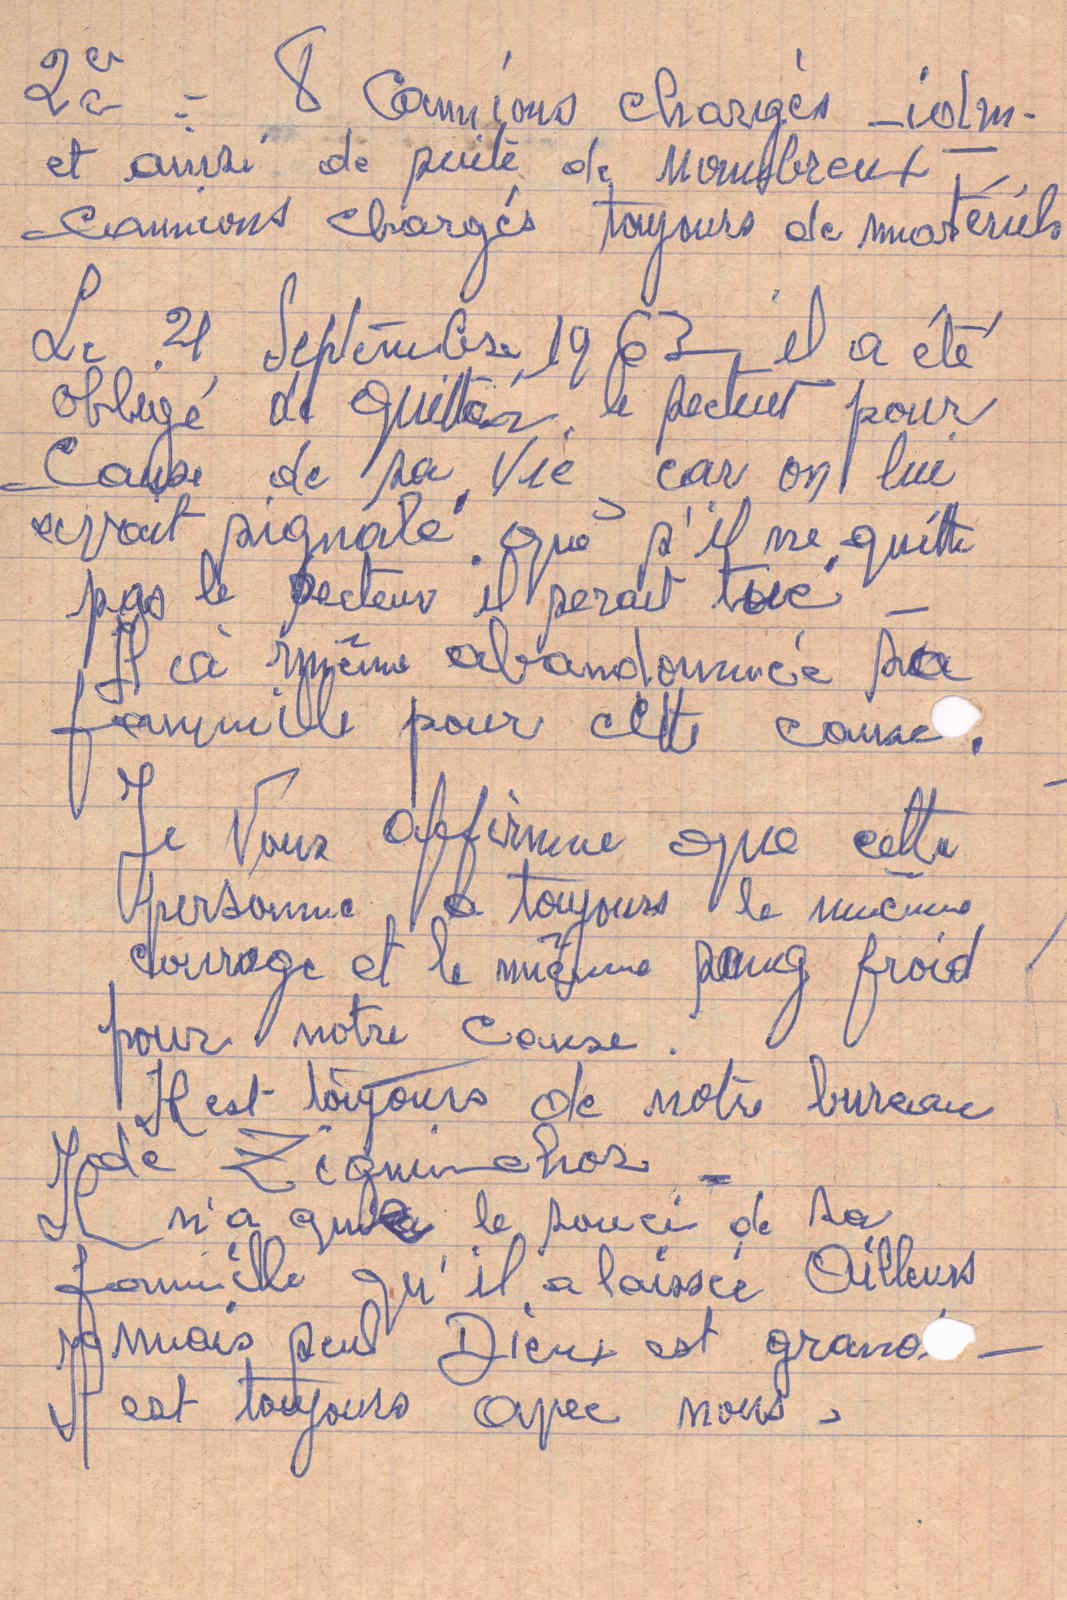 8 Camions chargés -idm-
et ainsi de suite de nombreux -
camions chargés toujours de matériels
Le 21 Septembre 1963, il a été
obligé de quitter le secteur pour
cause de sa vie car on lui
avait signalé que s'il ne quitte
pas le secteur il serait tué -
Il à même abandonnée sa
famille pour cette cause.
Je vous affirme que cette
personne a toujours le même
courage et le même sang froid
pour notre cause.
Il est toujours de notre bureau
de Ziguinchor -
Il n'a que le souci de sa
famille qu'il a laissée Ailleurs
mais seul Dieu est grand -
Il est toujours avec nous.